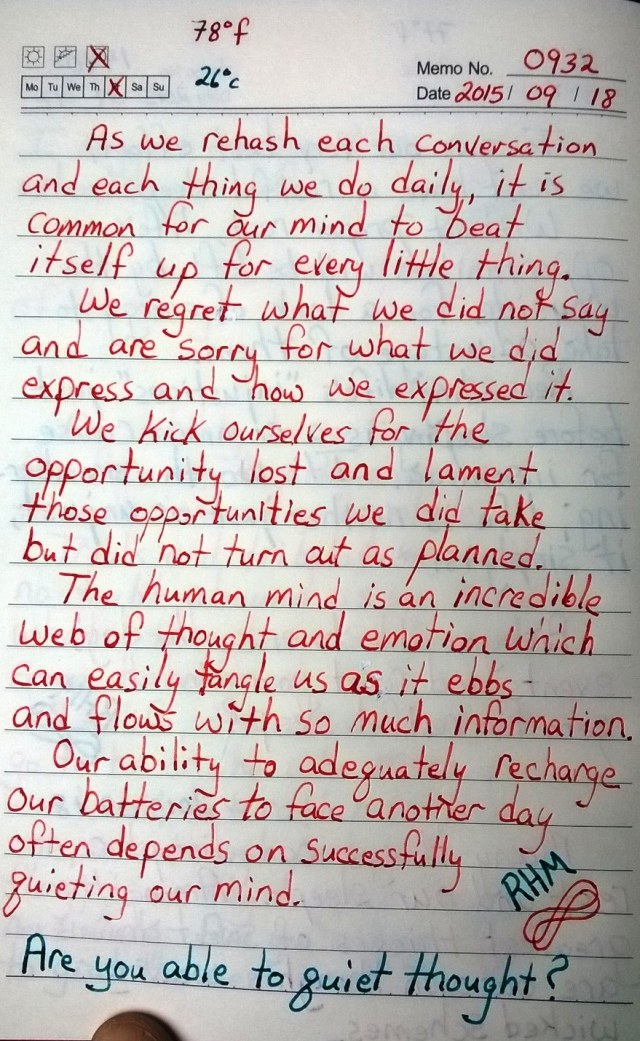 78°f
26°c
Memo No. 0932
Mo Tu We Th X Sa Su
Date 2015/ 09 / 18
As we rehash each conversation
and each thing we do daily, it is
common for our mind to beat
itself up for every little thing.
We regret what we did not say
and are sorry for what we did
express and how we expressed it.
We kick ourselves for the
opportunity lost and lament
those opportunities we did take
but did not turn out as planned.
The human mind is an incredible
web of thought and emotion which
can easily tangle us as it ebbs
and flows with so much information.
Our ability to adequately recharge
our batteries to face another day
often depends on successfully
quieting our mind.
RHM
Are you able to quiet thought?